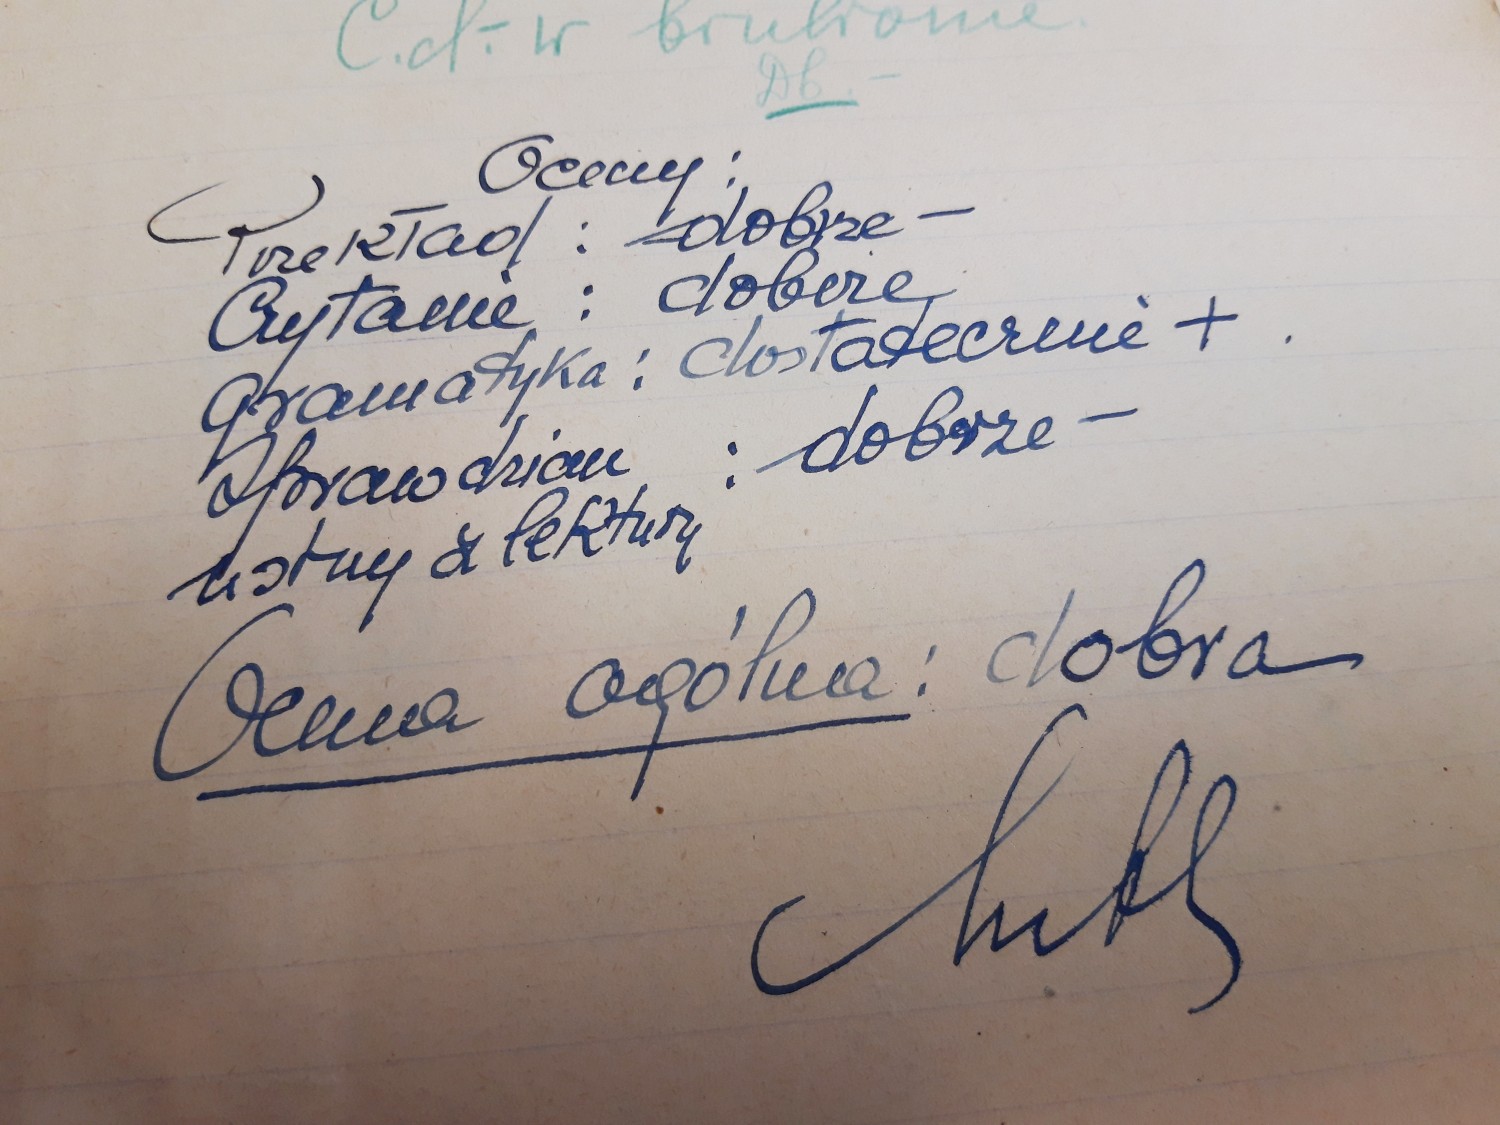 C.d. w brulionie.
Db. -
Oceny:
Przekład : dobrze -
Czytanie : dobrze
Gramatyka : dostatecznie + .
Sprawdzian : dobrze -
ustny z lektury
Ocena ogólna : dobra